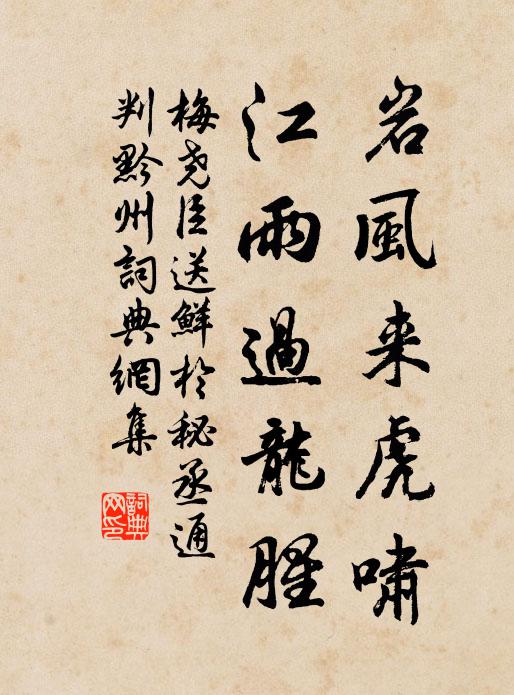 岩風来虎嘯
江雨過龍腥
梅尧臣送鮮於秘丞通
判黔州詞典網集
詞典
网印